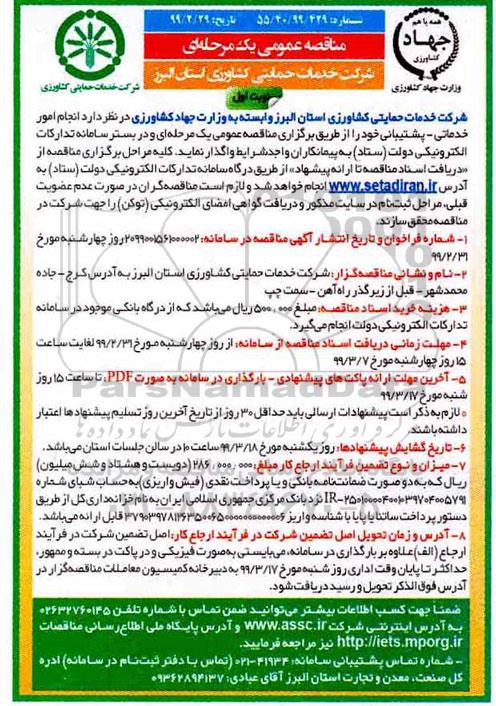 شماره: ۵۵/۲۰/۹۹/۴۲۹ تاریخ: ۹۹/۲/۲۹
همه با هم
جهاد
کشاورزی
وزارت جهاد کشاورزی
مناقصه عمومی یک مرحله‌ای
شرکت خدمات حمایتی کشاورزی استان البرز
شرکت خدمات حمایتی کشاورزی
نوبت اول
شرکت خدمات حمایتی کشاورزی استان البرز وابسته به وزارت جهاد کشاورزی در نظر دارد انجام امور
خدماتی - پشتیبانی خود را از طریق برگزاری مناقصه عمومی یک مرحله‌ای و در بستر سامانه تدارکات
الکترونیکی دولت (ستاد) به پیمانکاران واجد شرایط واگذار نماید. کلیه مراحل برگزاری مناقصه از
«دریافت اسناد مناقصه تا ارائه پیشنهاد» از طریق درگاه سامانه تدارکات الکترونیکی دولت (ستاد) به
آدرس www.setadiran.ir انجام خواهد شد و لازم است مناقصه‌گران در صورت عدم عضویت
قبلی، مراحل ثبت‌نام در سایت مذکور و دریافت گواهی امضای الکترونیکی (توکن) را جهت شرکت در
مناقصه محقق سازند.
۱- شماره فراخوان و تاریخ انتشار آگهی مناقصه در سامانه: ۲۰۹۹۰۰۱۵۶۱۰۰۰۰۰۲ روز چهارشنبه مورخ
۹۹/۲/۳۱
۲- نام و نشانی مناقصه‌گزار: شرکت خدمات حمایتی کشاورزی استان البرز به آدرس کرج - جاده
محمدشهر - قبل از زیر گذر راه آهن - سمت چپ
۳- هزینه خرید اسناد مناقصه: مبلغ ۵۰۰٫۰۰۰ ریال می‌باشد که از درگاه بانکی موجود در سامانه
تدارکات الکترونیکی دولت انجام می‌گیرد.
۴- مهلت زمانی دریافت اسناد مناقصه از سامانه: از روز چهارشنبه مورخ ۹۹/۲/۳۱ لغایت ساعت
۱۵ روز چهارشنبه مورخ ۹۹/۳/۷
۵- آخرین مهلت ارائه پاکت های پیشنهادی - بارگذاری در سامانه به صورت PDF: تا ساعت ۱۵ روز
شنبه مورخ ۹۹/۳/۱۷
لازم به ذکر است پیشنهادات ارسالی باید حداقل ۳۰ روز از تاریخ آخرین روز تسلیم پیشنهادها اعتبار
داشته باشند.
۶- تاریخ گشایش پیشنهادها: روز یکشنبه مورخ ۹۹/۳/۱۸ ساعت ۱۰ در سالن جلسات استان می‌باشد.
۷- میزان و نوع تضمین فرآیند ارجاع کار مبلغ: ۲۸۶٫۰۰۰٫۰۰۰ (دویست و هشتاد و شش میلیون)
ریال که به دو صورت ضمانتنامه بانکی و یا پرداخت نقدی (فیش واریزی) به حساب شبای شماره
نزد بانک مرکزی جمهوری اسلامی ایران به نام خزانه‌داری کل از طریق
دستور پرداخت ساتنا یا پایا با شناسه واریز قابل ارائه می‌باشد.
۸- آدرس و زمان تحویل اصل تضمین شرکت در فرآیند ارجاع کار: اصل تضمین شرکت در فرآیند
ارجاع (الف) علاوه بر بارگذاری در سامانه، می‌بایستی به صورت فیزیکی و در پاکت در بسته و ممهور،
حداکثر تا پایان وقت اداری روز شنبه مورخ ۹۹/۳/۱۷ به دبیرخانه کمیسیون معاملات مناقصه‌گزار در
آدرس فوق الذکر تحویل و رسید دریافت شود.
ضمنا جهت کسب اطلاعات بیشتر می‌توانید ضمن تماس با شماره تلفن ۰۲۶۳۲۷۶۰۱۴۵
به آدرس اینترنتی شرکت www.assc.ir و آدرس پایگاه ملی اطلاع‌رسانی مناقصات
http://iets.mporg.ir نیز مراجعه فرمایید.
- شماره تماس پشتیبانی سامانه: ۴۱۹۳۴-۰۲۱ (تماس با دفتر ثبت‌نام در سامانه) اداره
کل صنعت، معدن و تجارت استان البرز آقای عبادی: ۰۹۳۶۲۸۹۴۱۳۷